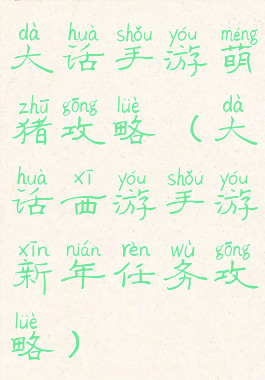 dà huà shǒu yóu méng
大话手游萌
zhū gōng lüè dà
猪攻略（大
huà xī yóu shǒu yóu
话西游手游
xīn nián rèn wù gōng
新年任务攻
lüè
略）